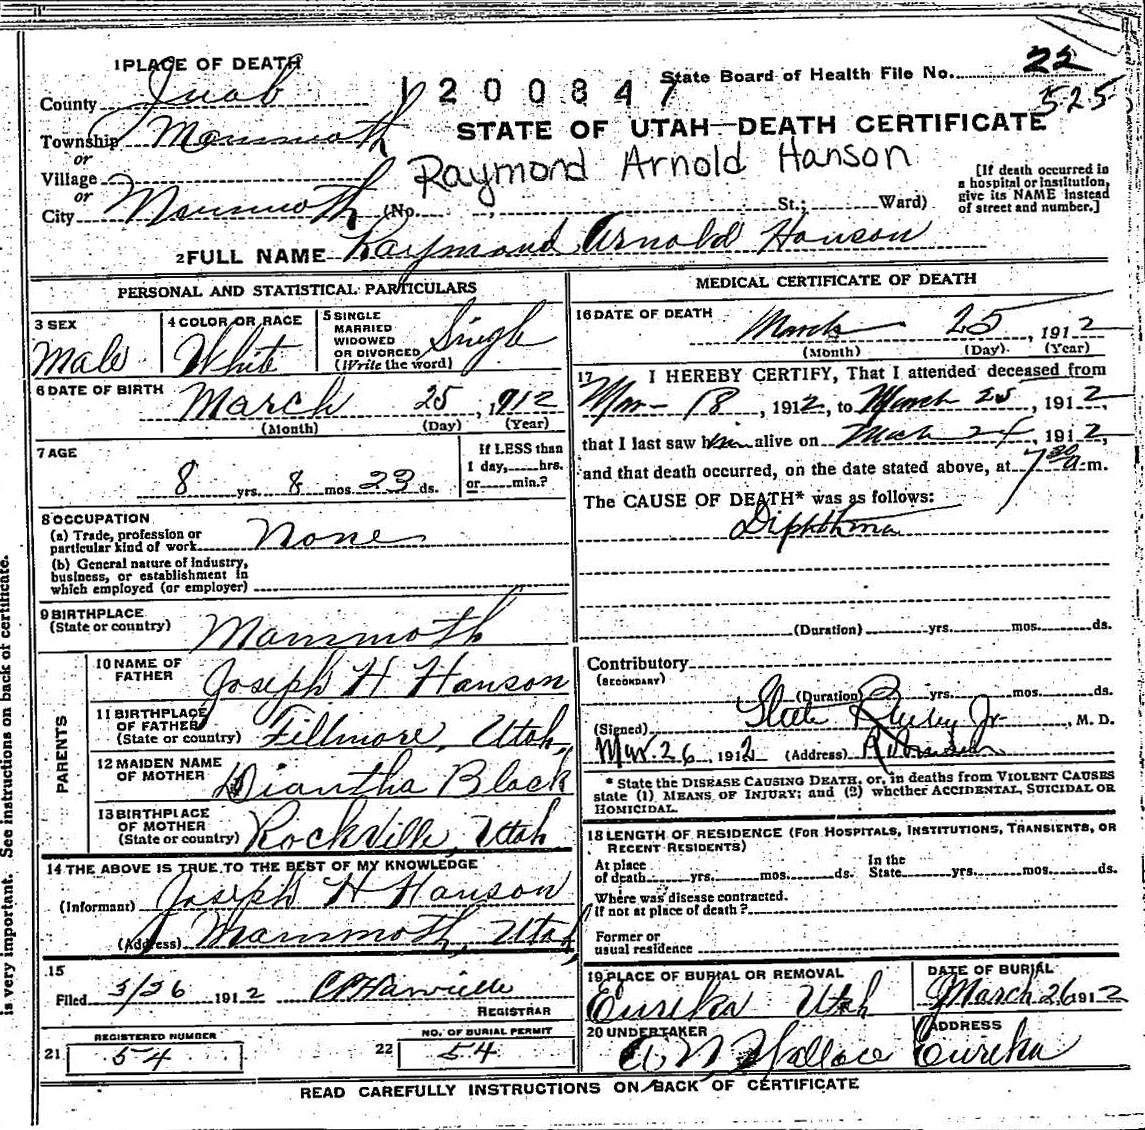 1 PLACE OF DEATH
State Board of Health File No. 22
525
County Juab
1200847
Township Mammoth
STATE OF UTAH—DEATH CERTIFICATE
or
Village
Raymond Arnold Hanson
or
City Mammoth (No. , St.; Ward)
[If death occurred in
a hospital or institution,
give its NAME instead
of street and number.]
2 FULL NAME Raymond Arnold Hanson
PERSONAL AND STATISTICAL PARTICULARS
3 SEX
Male
4 COLOR OR RACE
White
5 SINGLE
MARRIED
WIDOWED
OR DIVORCED
(Write the word)
Single
6 DATE OF BIRTH
March 25, 1912
(Month) (Day) (Year)
7 AGE
8 yrs. 8 mos. 23 ds.
If LESS than
1 day, hrs.
or min.?
8 OCCUPATION
(a) Trade, profession or
particular kind of work None
(b) General nature of industry,
business, or establishment in
which employed (or employer)
9 BIRTHPLACE
(State or country) Mammoth
PARENTS
10 NAME OF
FATHER Joseph H Hanson
11 BIRTHPLACE
OF FATHER
(State or country) Fillmore, Utah,
12 MAIDEN NAME
OF MOTHER Diantha Black
13 BIRTHPLACE
OF MOTHER
(State or country) Rockville, Utah
14 THE ABOVE IS TRUE TO THE BEST OF MY KNOWLEDGE
(Informant) Joseph H Hanson
(Address) Mammoth, Utah,
15
Filed 3/26 1912
REGISTRAR
REGISTERED NUMBER
21 54
NO. OF BURIAL PERMIT
22 54
MEDICAL CERTIFICATE OF DEATH
16 DATE OF DEATH
March 25, 1912
(Month) (Day) (Year)
17 I HEREBY CERTIFY, That I attended deceased from
Mar 18, 1912, to March 25, 1912,
that I last saw him alive on March 24, 1912,
and that death occurred, on the date stated above, at 7 30 a m.
The CAUSE OF DEATH* was as follows:
(Duration) yrs. mos. ds.
Contributory
(SECONDARY)
(Duration) yrs. mos. ds.
(Signed) Jr , M. D.
Mar. 26, 1912 (Address)
* State the DISEASE CAUSING DEATH, or, in deaths from VIOLENT CAUSES
state (1) MEANS OF INJURY; and (2) whether ACCIDENTAL, SUICIDAL OR
HOMICIDAL.
18 LENGTH OF RESIDENCE (FOR HOSPITALS, INSTITUTIONS, TRANSIENTS, OR
RECENT RESIDENTS)
At place
of death yrs. mos. ds.
In the
State yrs. mos. ds.
Where was disease contracted,
if not at place of death?
Former or
usual residence
19 PLACE OF BURIAL OR REMOVAL
Eureka Utah
DATE OF BURIAL
March 26, 1912
20 UNDERTAKER
Wallace
ADDRESS
Eureka
READ CAREFULLY INSTRUCTIONS ON BACK OF CERTIFICATE
is very important. See instructions on back of certificate.